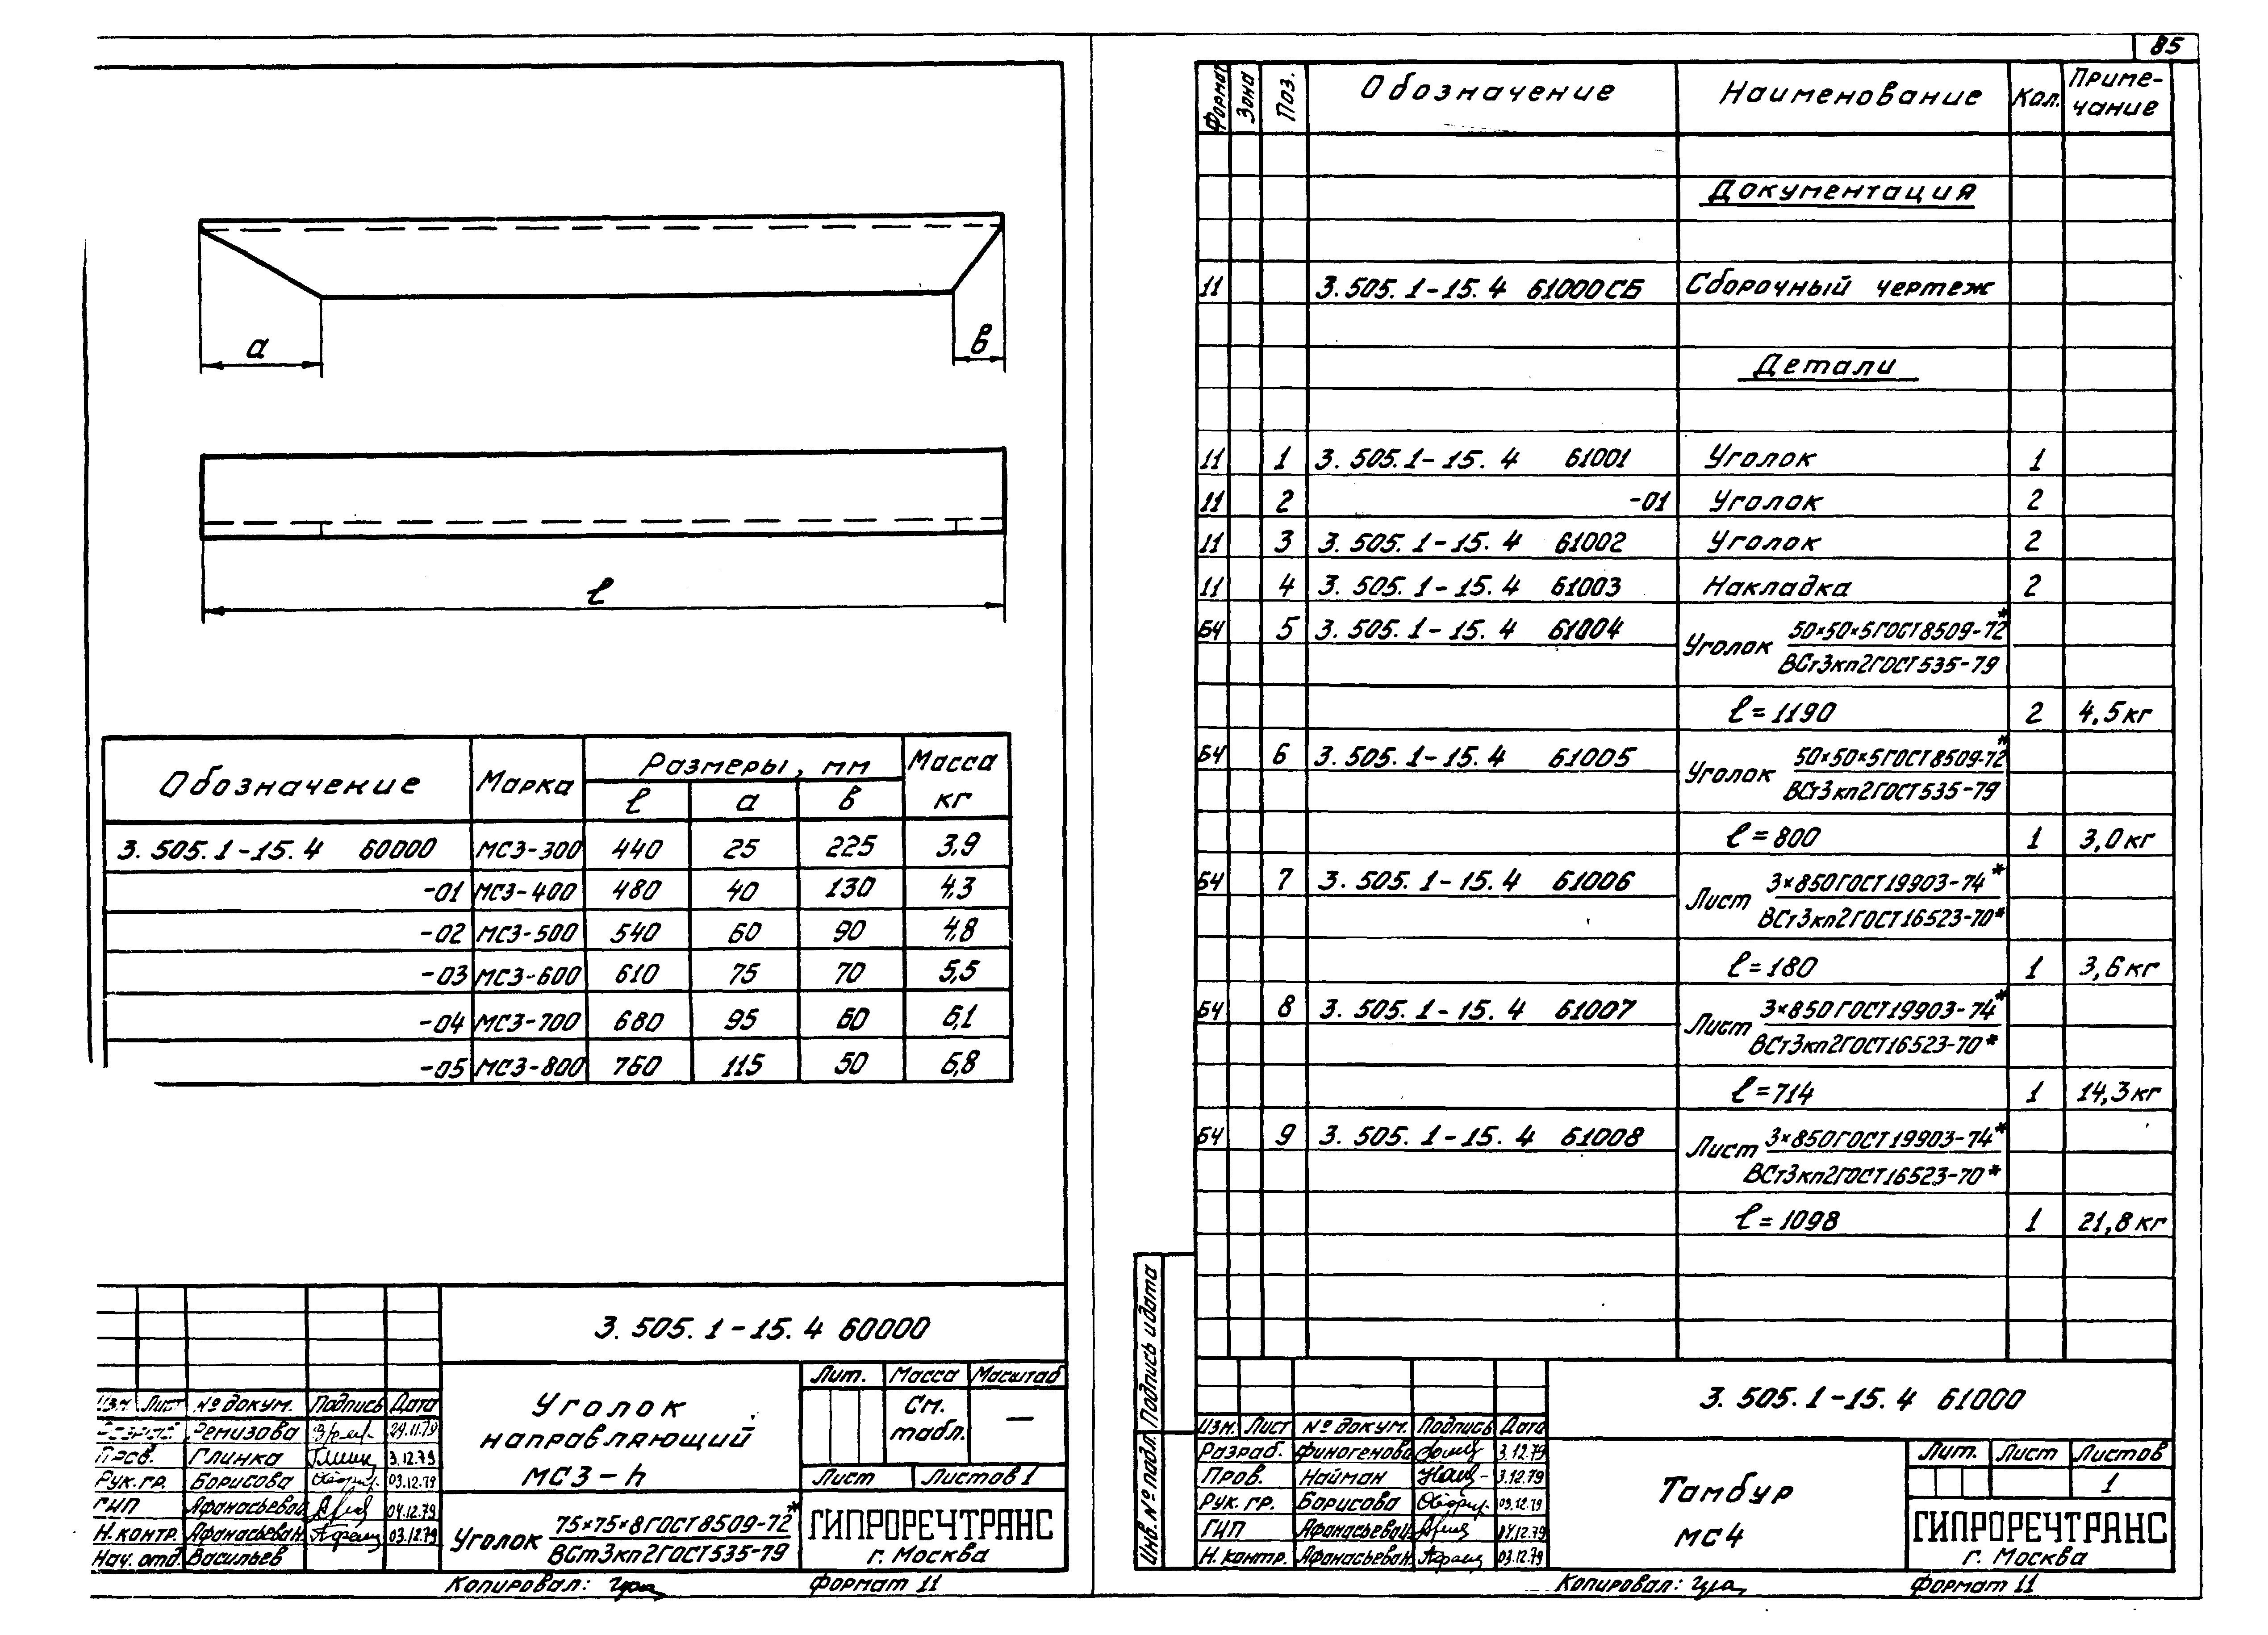 85
a
в
ℓ
Обозначение Марка Размеры, мм Масса кг
ℓ a в
3.505.1-15.4 60000 МС3-300 440 25 225 3,9
-01 МС3-400 480 40 130 4,3
-02 МС3-500 540 60 90 4,8
-03 МС3-600 610 75 70 5,5
-04 МС3-700 680 95 60 6,1
-05 МС3-800 760 115 50 6,8
3.505.1-15.4 60000
Изм. Лист № докум. Подпись Дата
Ремизова 29.11.79
Пров. Глинка 3.12.79
Рук.гр. Борисова 03.12.79
ГИП Афанасьева 04.12.79
Н.контр. Афанасьева Н. 03.12.79
Нач. отд. Васильев
Уголок
направляющий
МС3-h
Уголок 75×75×8 ГОСТ 8509-72*
ВСт3кп2 ГОСТ 535-79
Лит. Масса Масштаб
См. табл. —
Лист Листов 1
ГИПРОРЕЧТРАНС
г. Москва
Копировал:
Формат 11
Формат Зона Поз. Обозначение Наименование Кол. Приме-
чание
Документация
11 3.505.1-15.4 61000СБ Сборочный чертеж
Детали
11 1 3.505.1-15.4 61001 Уголок 1
11 2 -01 Уголок 2
11 3 3.505.1-15.4 61002 Уголок 2
11 4 3.505.1-15.4 61003 Накладка 2
БЧ 5 3.505.1-15.4 61004 Уголок 50×50×5 ГОСТ 8509-72*
ВСт3кп2 ГОСТ 535-79
ℓ=1190 2 4,5кг
БЧ 6 3.505.1-15.4 61005 Уголок 50×50×5 ГОСТ 8509-72*
ВСт3кп2 ГОСТ 535-79
ℓ=800 1 3,0кг
БЧ 7 3.505.1-15.4 61006 Лист 3×850 ГОСТ 19903-74*
ВСт3кп2 ГОСТ 16523-70*
ℓ=180 1 3,6кг
БЧ 8 3.505.1-15.4 61007 Лист 3×850 ГОСТ 19903-74*
ВСт3кп2 ГОСТ 16523-70*
ℓ=714 1 14,3кг
БЧ 9 3.505.1-15.4 61008 Лист 3×850 ГОСТ 19903-74*
ВСт3кп2 ГОСТ 16523-70*
ℓ=1098 1 21,8кг
Подпись и дата
Инв. № подл.
3.505.1-15.4 61000
Изм. Лист № докум. Подпись Дата
Разраб. Финогенова 3.12.79
Пров. Найман 3.12.79
Рук. гр. Борисова 03.12.79
ГИП Афанасьева 04.12.79
Н.контр. Афанасьева Н. 03.12.79
Тамбур
МС4
Лит. Лист Листов
1
ГИПРОРЕЧТРАНС
г. Москва
Копировал:
Формат 11